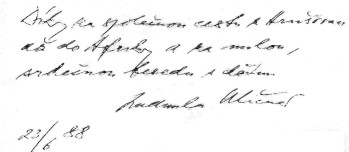 Díky za společnou cestu z Hrušovan
až do Afriky a za milou,
srdečnou besedu s dětmi
Ludmila
23/6 88